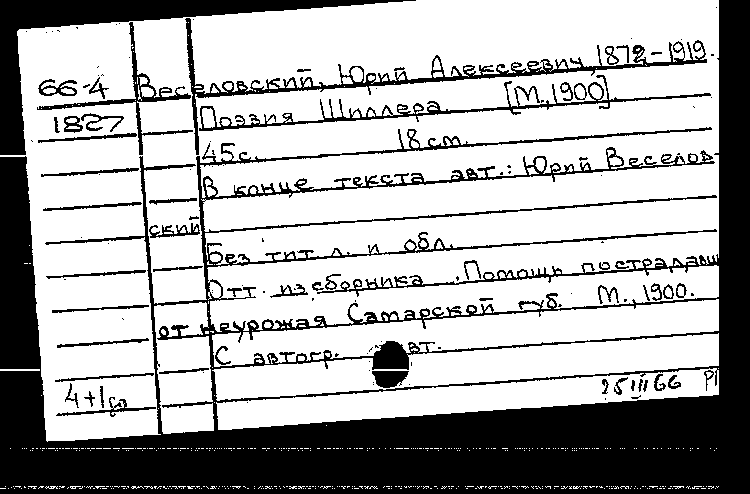 66-4 Веселовский, Юрий Алексеевич, 1872-1919.
1827 Поэзия Шиллера. [М., 1900].
45с. 18 см.
В конце текста авт.: Юрий Веселов-
ский
Без тит. л. и обл.
Отт. из сборника „Помощь пострадавш
от неурожая Самарской губ. М., 1900.
С автогр. вт.
4+1
25 III 66